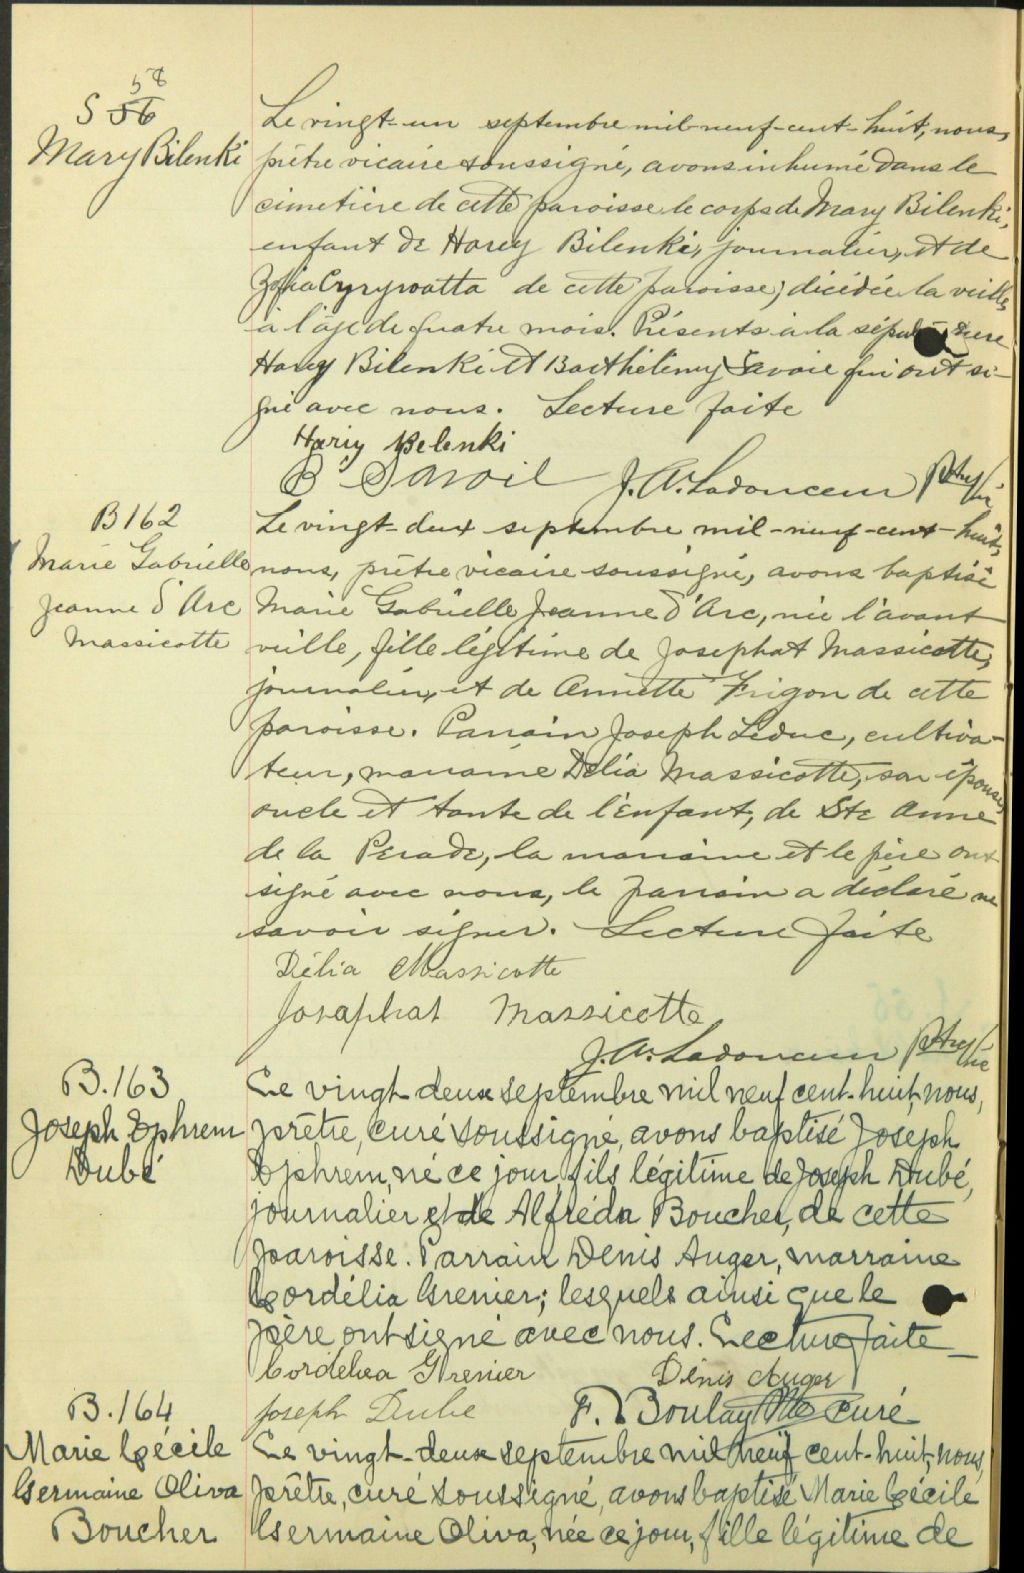 58
S 56
Mary Bilenki
Le vingt-un septembre mil-neuf-cent-huit, nous,
prêtre vicaire soussigné, avons inhumé dans le
cimetière de cette paroisse le corps de Mary Bilenki,
enfant de Harry Bilenki, journalier, et de
Zofia de cette paroisse, décédée la veille,
à l'âge de quatre mois. Présents à la sépulture
Harry Bilenki et Barthélémy Savoie qui ont si-
gné avec nous. Lecture faite
Harry Belenki
B Savoie J. A. Ladouceur Ptre
B 162
Marie Gabrielle
Jeanne d'Arc
Massicotte
Le vingt-deux septembre mil-neuf-cent-huit,
nous, prêtre vicaire soussigné, avons baptisé
Marie Gabrielle Jeanne d'Arc, née l'avant
veille, fille légitime de Josephat Massicotte,
journalier, et de Annette Frigon de cette
paroisse. Parrain Joseph Leduc, cultiva-
teur, marraine Délia Massicotte, son épouse,
oncle et tante de l'enfant, de Ste Anne
de la Perade, la marraine et le père ont
signé avec nous, le parrain a déclaré ne
savoir signer. Lecture faite
Délia Massicotte
Josaphat Massicotte
J. A. Ladouceur Ptre
B. 163
Joseph Ephrem
Dubé
Le vingt-deux septembre mil neuf cent-huit, nous,
prêtre, curé soussigné, avons baptisé Joseph
Ephrem, né ce jour, fils légitime de Joseph Dubé,
journalier et de Alfréda Boucher, de cette
paroisse. Parrain Denis Auger, marraine
Cordélia Grenier; lesquels ainsi que le
père ont signé avec nous. Lecture faite_
Cordelea Grenier Dénis Auger
Joseph Dube F. Boulay Ptre curé
B. 164
Marie Cécile
Germaine Oliva
Boucher
Le vingt-deux septembre mil neuf cent-huit, nous,
prêtre, curé soussigné, avons baptisé Marie Cécile
Germaine Oliva, née ce jour, fille légitime de